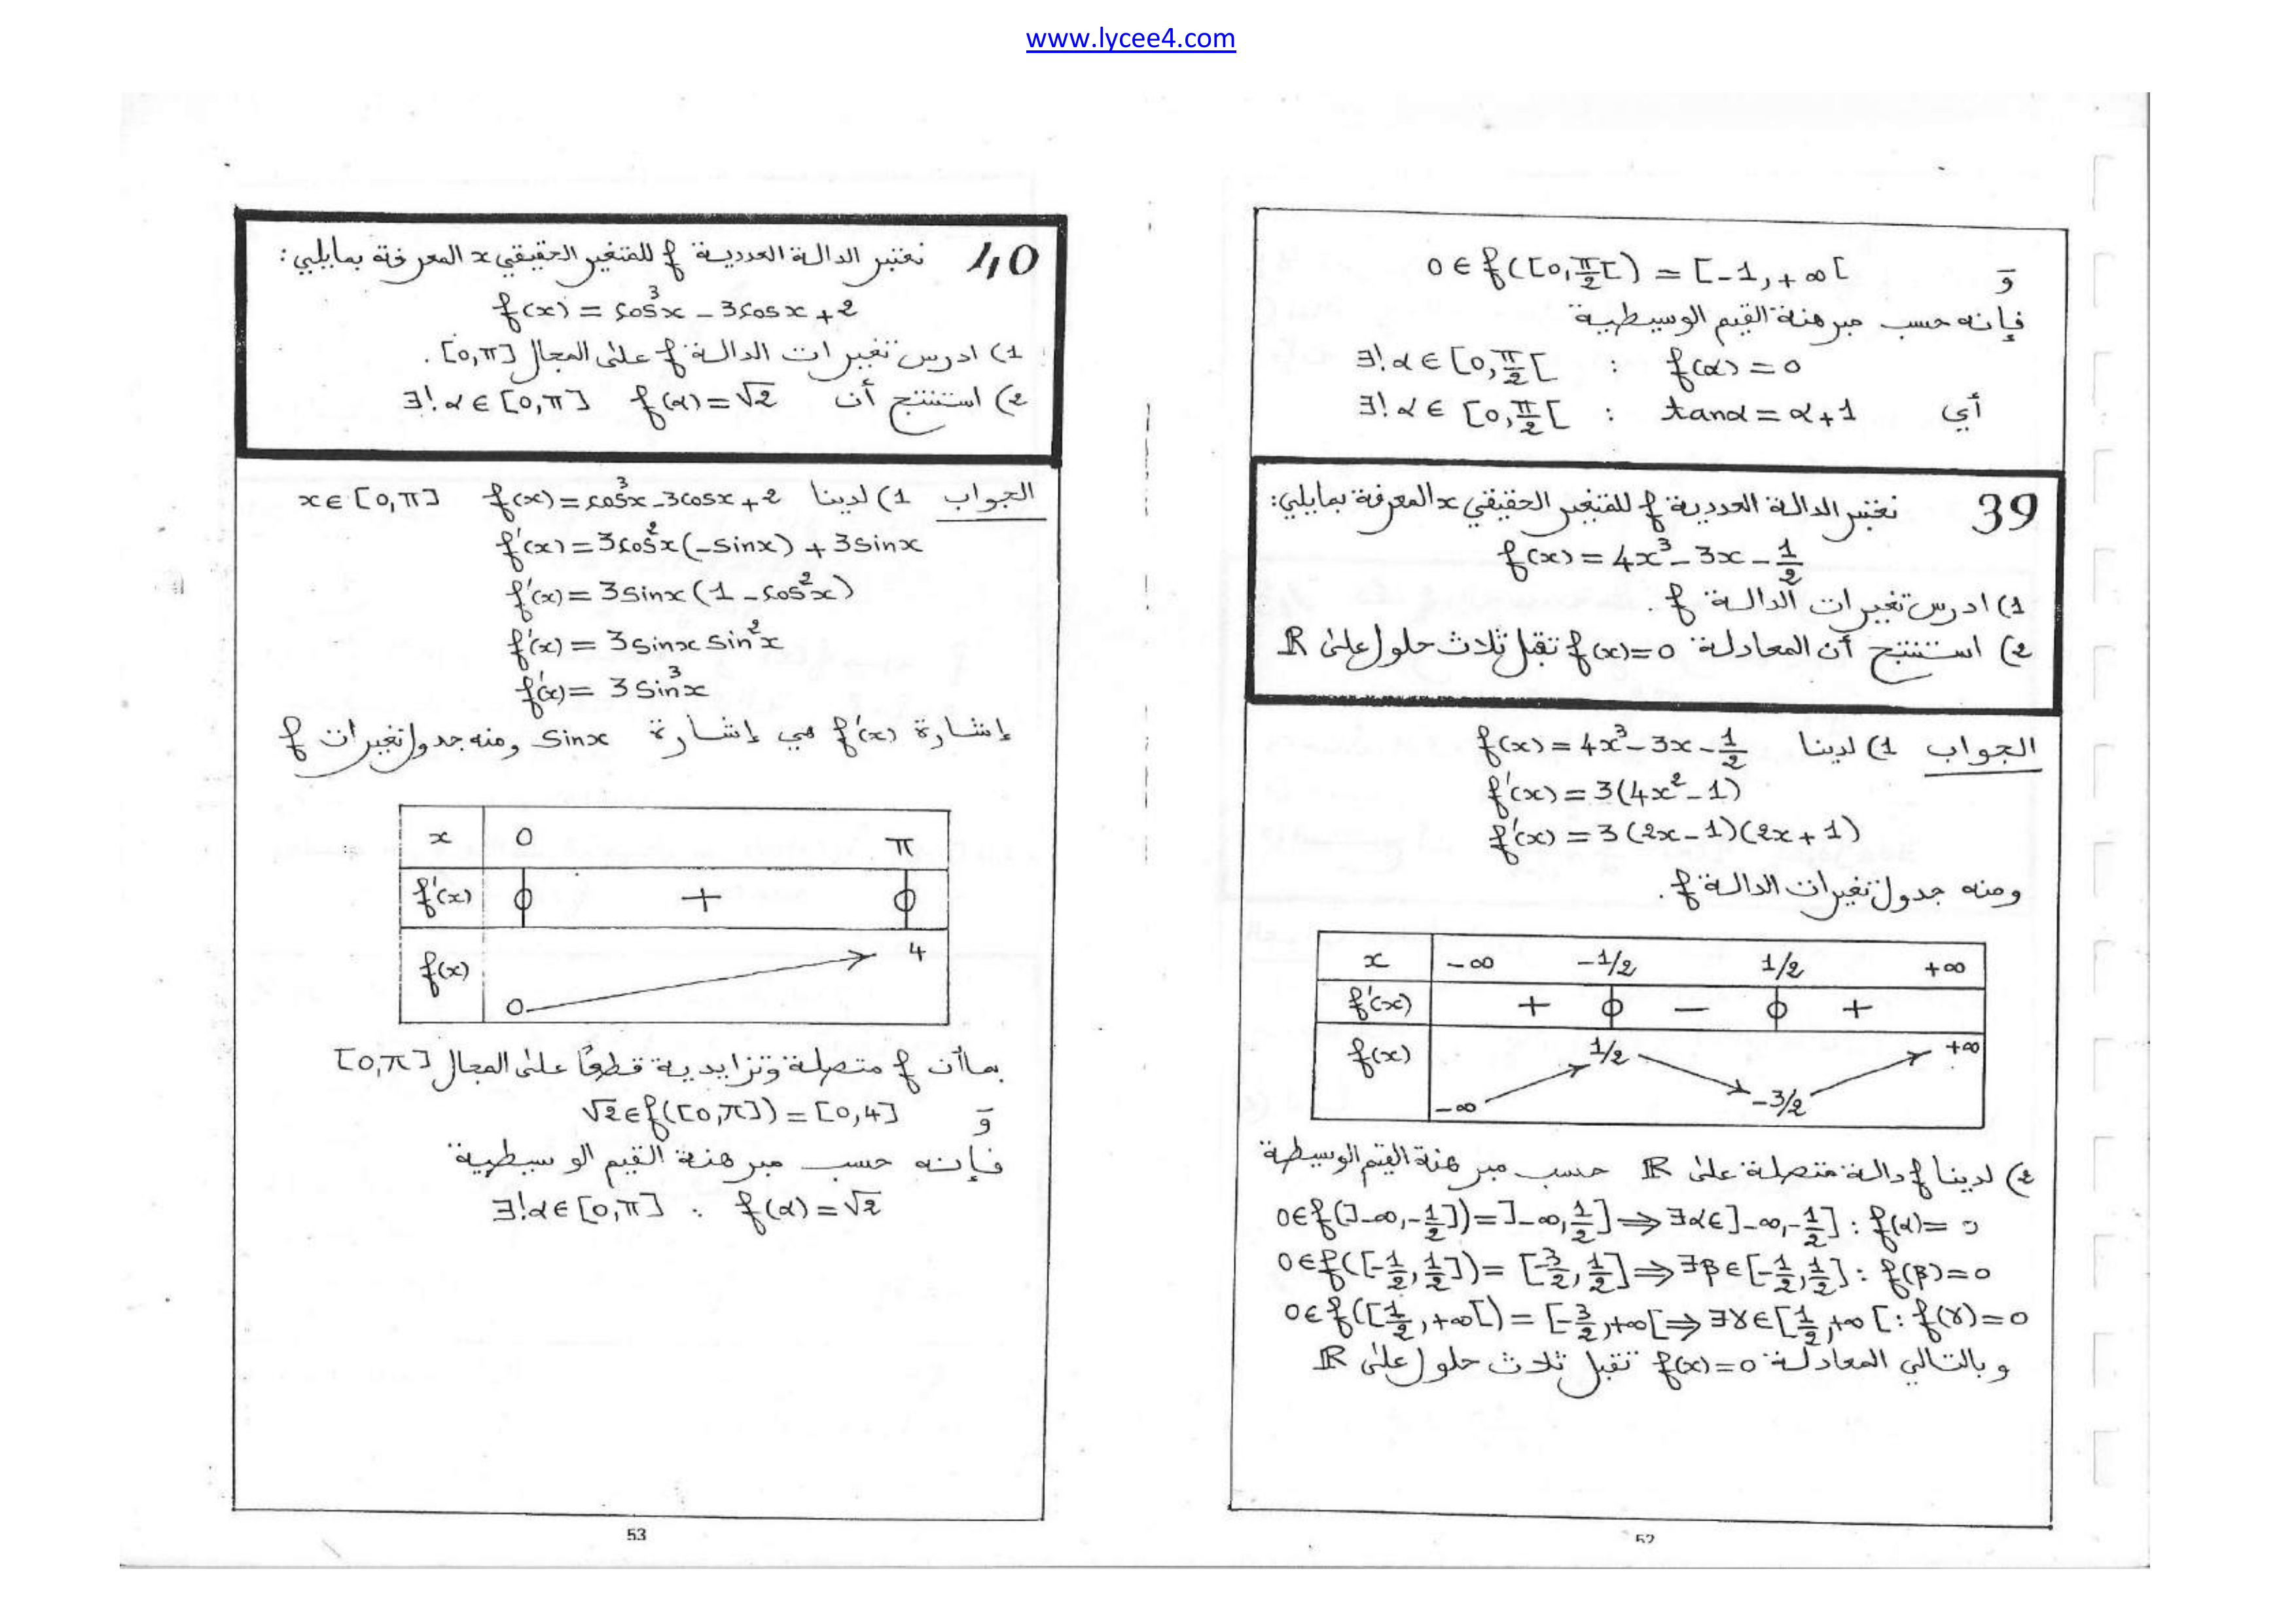 www.lycee4.com
و 0 ∈ f([0,π/2[) = [-1,+∞[
فإنه حسب مبرهنة القيم الوسيطية
∃!α ∈ [0,π/2[ : f(α) = 0
أي ∃!α ∈ [0,π/2[ : tanα = α+1
39 نعتبر الدالة العددية f للمتغير الحقيقي x المعرفة بمايلي:
f(x) = 4x³ - 3x - 1/2
1) ادرس تغيرات الدالة f.
2) استنتج أن المعادلة f(x)=0 تقبل ثلاث حلول على ℝ
الجواب 1) لدينا f(x) = 4x³ - 3x - 1/2
f'(x) = 3(4x² - 1)
f'(x) = 3(2x-1)(2x+1)
ومنه جدول تغيرات الدالة f.
x -∞ -1/2 1/2 +∞
f'(x) + 0 - 0 +
f(x) -∞ 1/2 -3/2 +∞
2) لدينا f دالة متصلة على ℝ حسب مبرهنة القيم الوسيطة
0∈f(]-∞,-1/2]) = ]-∞,1/2] ⇒ ∃α∈]-∞,-1/2] : f(α)=0
0∈f([-1/2,1/2]) = [-3/2,1/2] ⇒ ∃β∈[-1/2,1/2] : f(β)=0
0∈f([1/2,+∞[) = [-3/2,+∞[ ⇒ ∃γ∈[1/2,+∞[ : f(γ)=0
وبالتالي المعادلة f(x)=0 تقبل ثلاث حلول على ℝ
52
40 نعتبر الدالة العددية f للمتغير الحقيقي x المعرفة بمايلي:
f(x) = cos³x - 3cosx + 2
1) ادرس تغيرات الدالة f على المجال [0,π].
2) استنتج أن ∃!α∈[0,π] f(α)=√2
الجواب 1) لدينا f(x) = cos³x - 3cosx + 2 x∈[0,π]
f'(x) = 3cos²x(-sinx) + 3sinx
f'(x) = 3sinx(1 - cos²x)
f'(x) = 3sinx sin²x
f'(x) = 3sin³x
إشارة f'(x) هي إشارة sinx ومنه جدول تغيرات f
x 0 π
f'(x) 0 + 0
f(x) 0 4
بماأن f متصلة وتزايدية قطعًا على المجال [0,π]
و √2∈f([0,π]) = [0,4]
فإنه حسب مبرهنة القيم الوسيطية
∃!α∈[0,π] : f(α)=√2
53